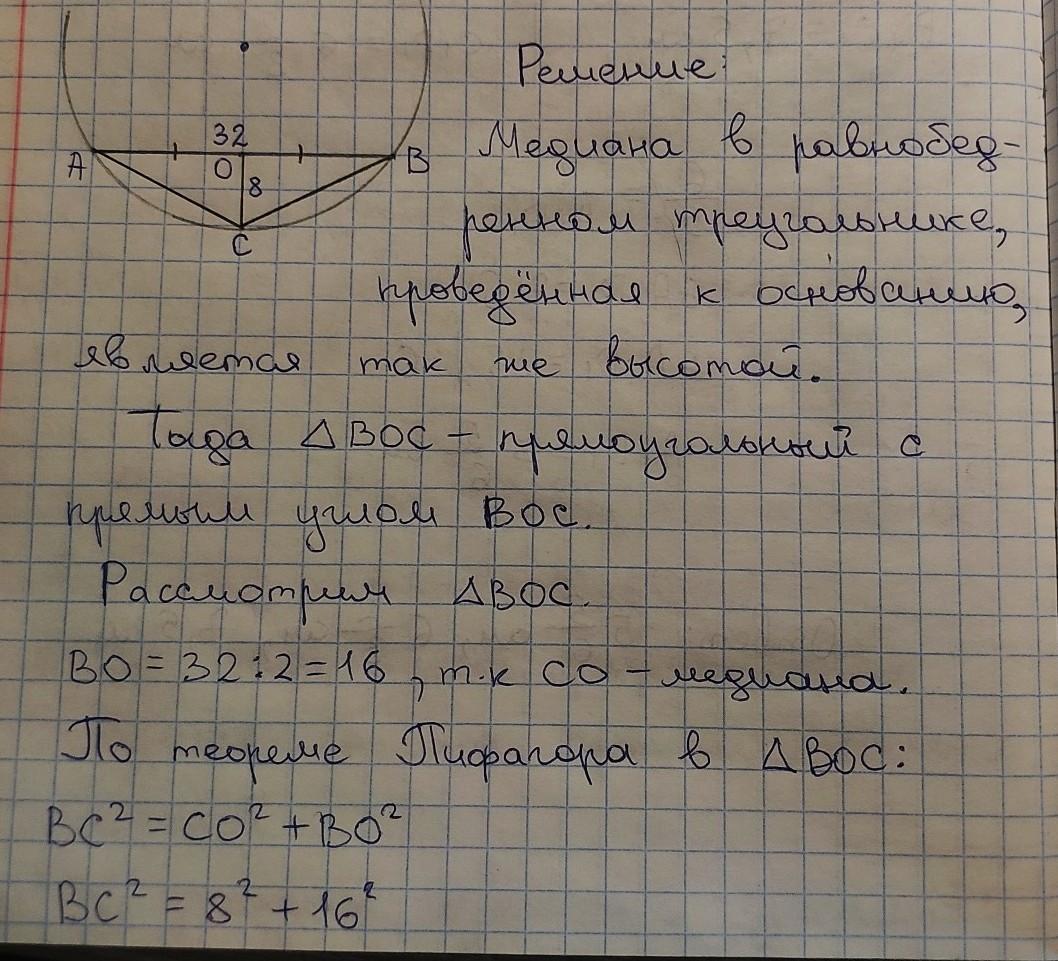 32
Решение:
A
O
B
Медиана в равнобед-
8
ренном треугольнике,
C
проведённая к основанию,
является так же высотой.
Тогда △BOC - прямоугольный с
прямым углом BOC.
Рассмотрим △BOC.
BO = 32 : 2 = 16, т.к CO - медиана.
По теореме Пифагора в △BOC:
BC² = CO² + BO²
BC² = 8² + 16²